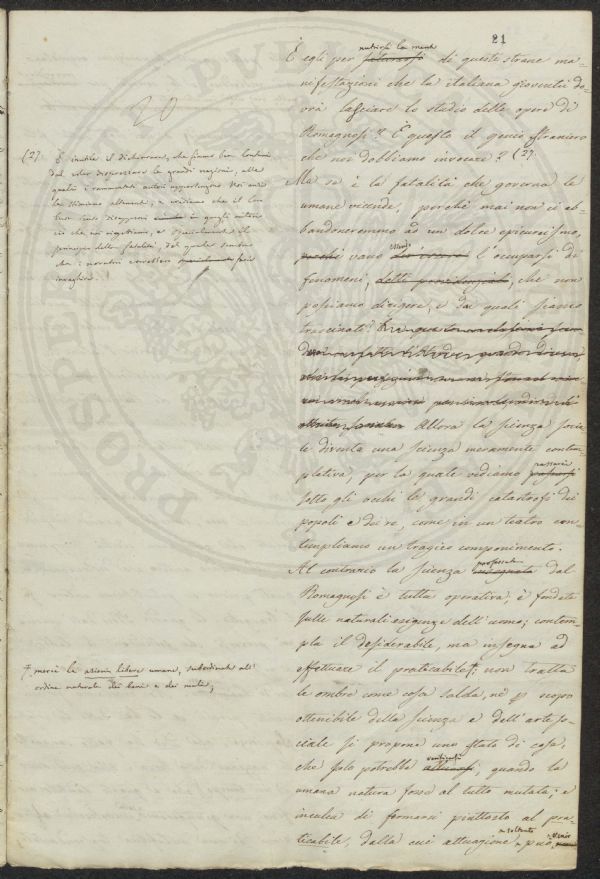 21
nutrirsi la mente
È egli per di queste strane ma-
nifestazioni che la italiana gioventù do-
vrà lasciare lo studio delle opere di
Romagnosi? È questo il genio straniero
che noi dobbiamo invocare? (2)
Ma se è la fatalità che governa le
umane vicende, perchè mai non ci ab-
bandoneremo ad un dolce epicureismo,
vano l'occuparsi di
fenomeni, che non
possiamo dirigere, e dai quali siamo
trascinati?
Allora la scienza socia-
le diventa una scienza meramente contem-
plativa, per la quale vediamo passarci
sotto gli occhi le grandi catastrofi dei
popoli e dei re, come in un teatro con-
templiamo un tragico componimento.
Al contrario la scienza professata dal
Romagnosi è tutta operativa, è fondata
sulle naturali esigenze dell'uomo; contem-
pla il desiderabile, ma insegna ad
effettuare il praticabile +; non tratta
le ombre come cosa salda, nè p scopo
ottenibile della scienza e dell'arte so-
ciale si propone uno stato di cose,
che solo potrebbe verificarsi, quando la
umana natura fosse al tutto mutata; e
inculca di fermarsi piuttosto al pra-
ticabile, dalla cui attuazione soltanto può
20
(2) È inutile il dichiarare, che siamo ben lontani
dal voler disprezzare le grandi nazioni, alle
quali i rammentati autori appartengono. Noi anzi
le stimiamo altamente, e crediamo che il
in quegli autori
ciò che noi rigettiamo, e specialmente il
principio della fatalità, del quale sembra
che i novatori vorrebbero farsi
+ mercè le azioni libere umane, subordinate all'
ordine naturale dei beni e dei mali;